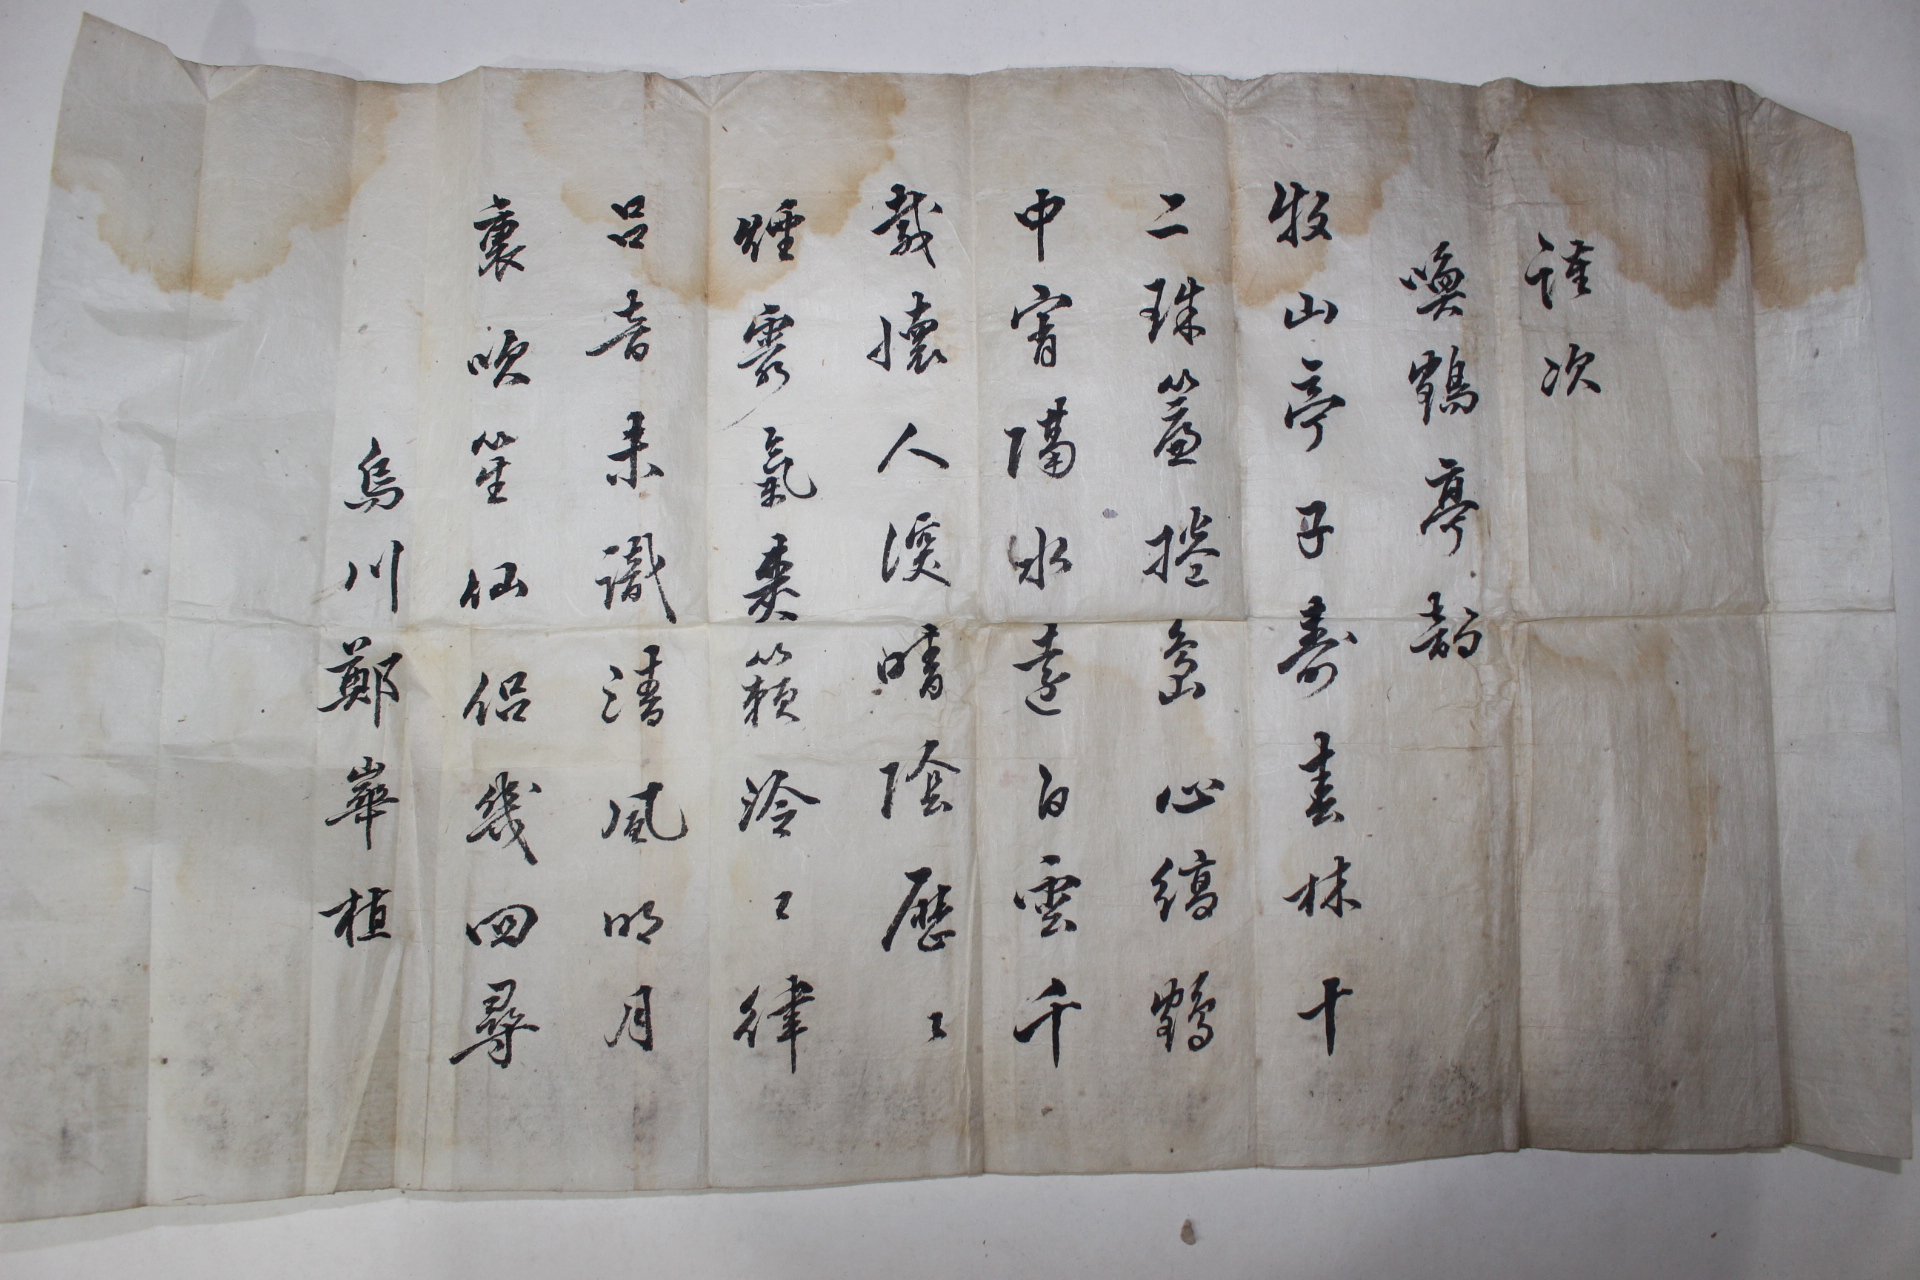 謹次
喚鶴亭韻
牧山亭子壽春林十
二珠簾捲島心縞鶴
中宵隔水遠白雲千
載懷人深晴陰歷〻
煙霞氣爽籟泠〻律
呂音未識清風明月
裏吹笙仙侶幾回尋
烏川鄭崋植